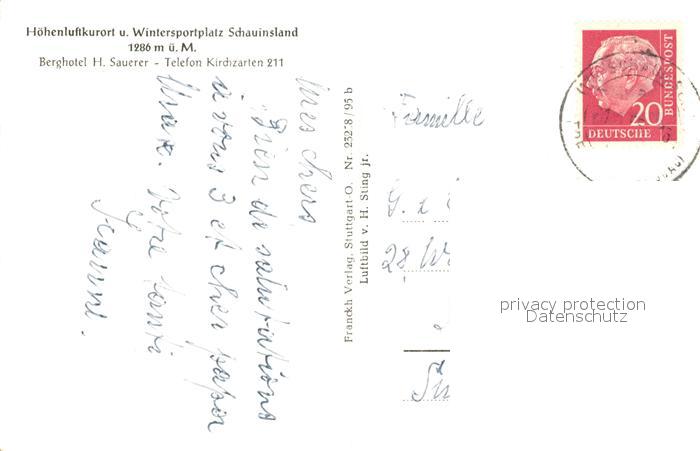 Höhenluftkurort u. Wintersportplatz Schauinsland
1286 m ü. M.
Berghotel H. Sauerer - Telefon Kirchzarten 211
Mes chers
Bien de salutations
à vous 3 et cher papa
Max. Votre tante
Jeanne.
Franckh Verlag, Stuttgart-O. Nr. 23278/95 b
Luftbild v. H. Sting jr.
Familie
G.
28 W
20
DEUTSCHE
BUNDESPOST
privacy protection
Datenschutz